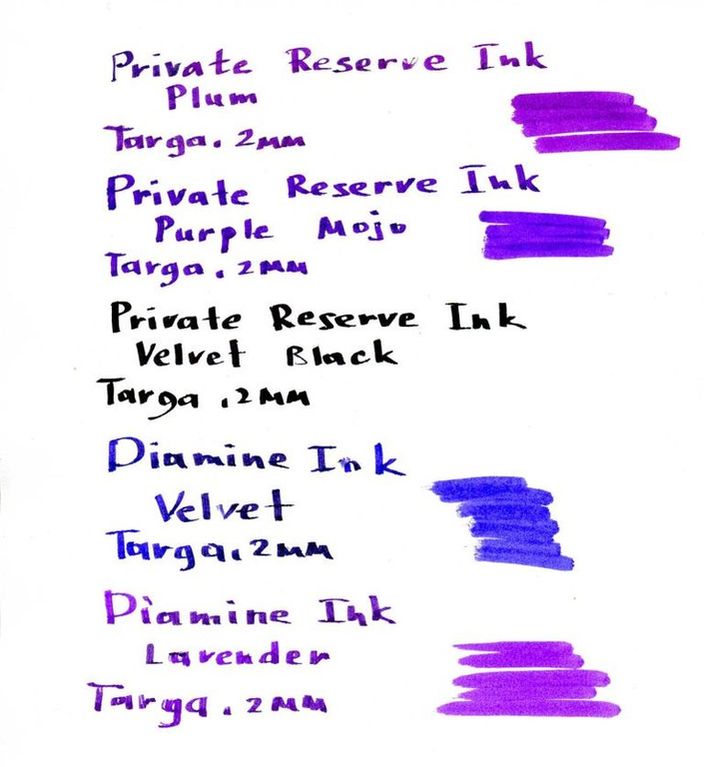 Private Reserve Ink
Plum
Targa . 2mm
Private Reserve Ink
Purple Mojo
Targa . 2mm
Private Reserve Ink
Velvet Black
Targa .2mm
Diamine Ink
Velvet
Targa . 2mm
Diamine Ink
Lavender
Targa . 2mm